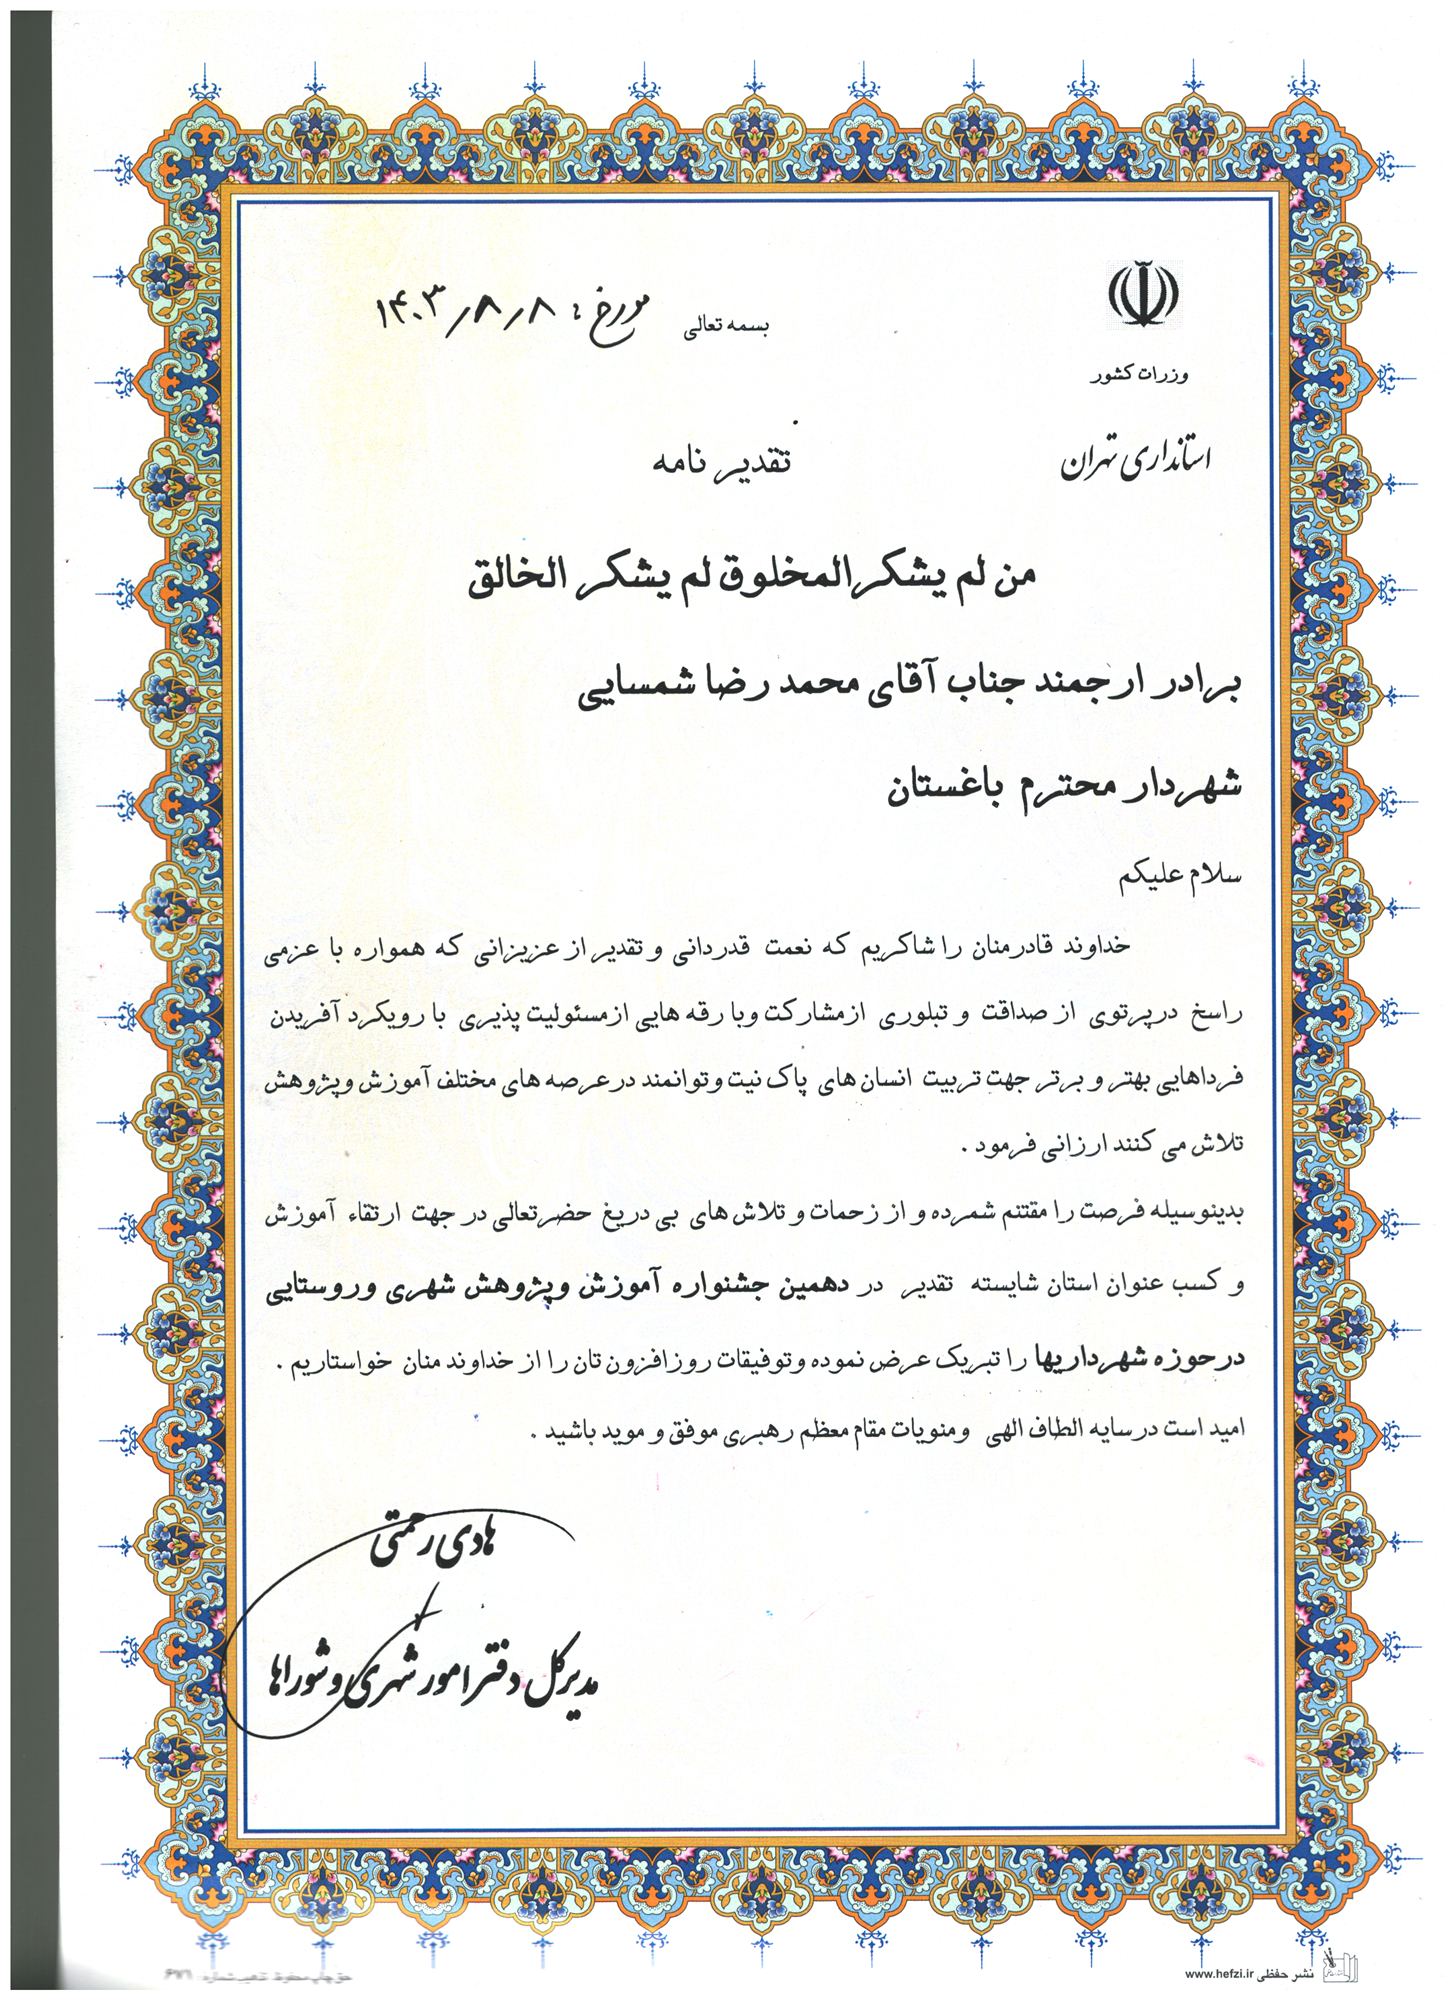 بسمه تعالی
مورخ : ۱۴۰۳/۸/۸
وزرات کشور
استانداری تهران
تقدیر نامه
من لم یشکرالمخلوق لم یشکر الخالق
برادر ارجمند جناب آقای محمد رضا شمسایی
شهردار محترم باغستان
سلام علیکم
خداوند قادرمنان را شاکریم که نعمت قدردانی و تقدیر از عزیزانی که همواره با عزمی
راسخ درپرتوی از صداقت و تبلوری ازمشارکت وبا رقه هایی ازمسئولیت پذیری با رویکرد آفریدن
فرداهایی بهتر و برتر جهت تربیت انسان های پاک نیت وتوانمند درعرصه های مختلف آموزش وپژوهش
تلاش می کنند ارزانی فرمود .
بدینوسیله فرصت را مقتنم شمرده و از زحمات و تلاش های بی دریغ حضرتعالی در جهت ارتقاء آموزش
و کسب عنوان استان شایسته تقدیر در دهمین جشنواره آموزش وپژوهش شهری وروستایی
درحوزه شهرداریها را تبریک عرض نموده وتوفیقات روزافزون تان را از خداوند منان خواستاریم .
امید است درسایه الطاف الهی ومنویات مقام معظم رهبری موفق و موید باشید .
هادی رحمتی
مدیرکل دفتر امور شهری و شوراها
نشر حفظی www.hefzi.ir